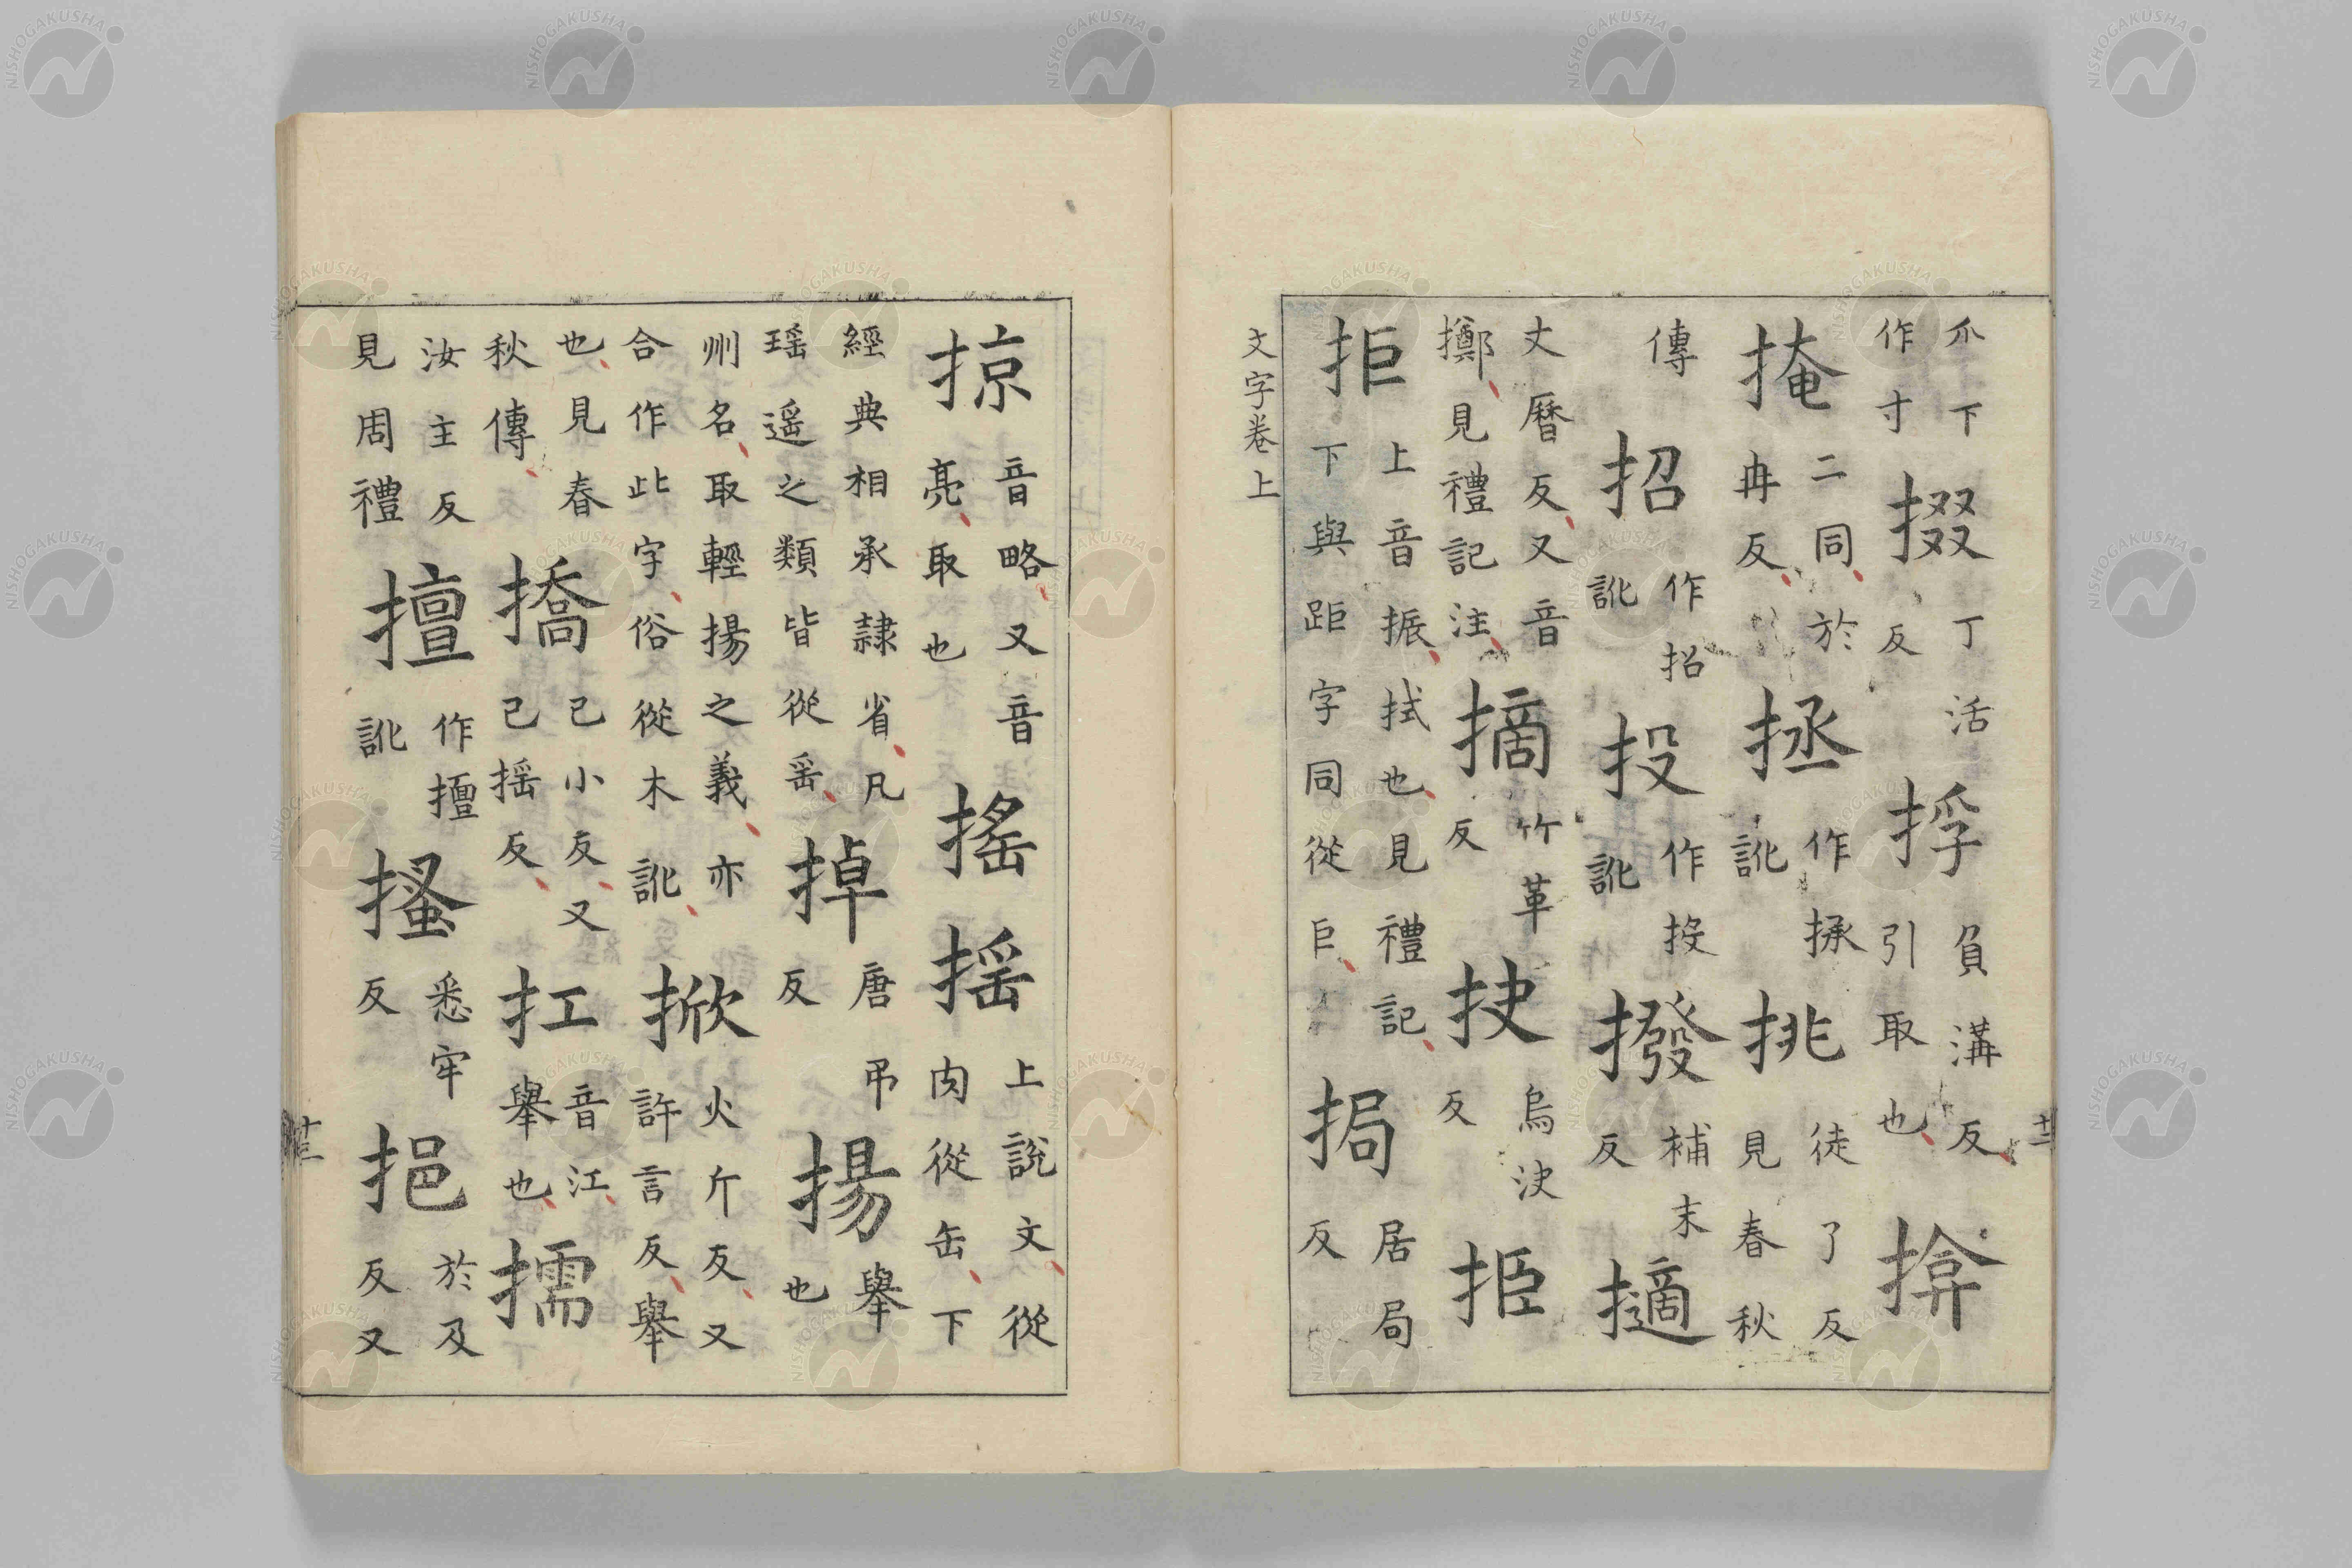 十二
爪下作寸掇丁活反捊負溝反引取也揜
掩二同於冉反拯作拯訛挑徒了反見春秋
傳招作招訛投作投訛撥補末反擿
丈曆反又音擲見禮記注摘竹革反抉烏決反挋
拒上音振拭也見禮記下與距字同從巨挶居局反
文字卷上
掠音略又音亮取也搖摇上說文從肉從缶下
經典相承隷省凡瑶遥之類皆從䍃掉唐吊反揚舉也
州名取輕揚之義亦合作此字俗從木訛掀火斤反又許言反舉
也見春秋傳撟己小反又己摇反扛音江舉也擩
汝主反見周禮擅作擅訛搔悉牢反挹於及反又
十三